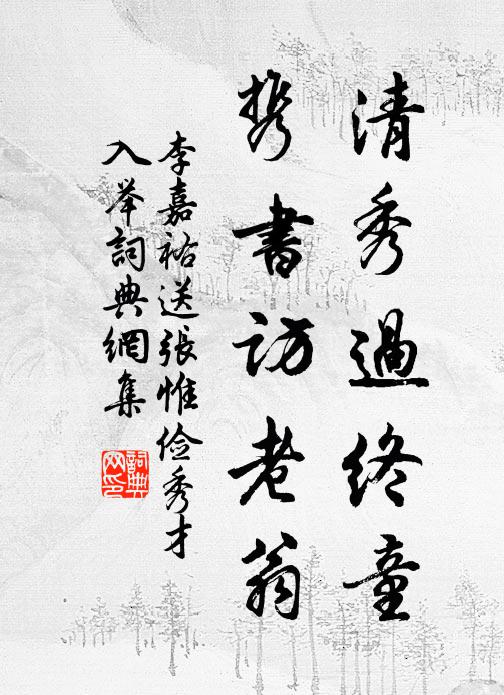 清秀過終童
携書訪老翁
李嘉祐送張惟儉秀才
入举詞典網集
詞典网印